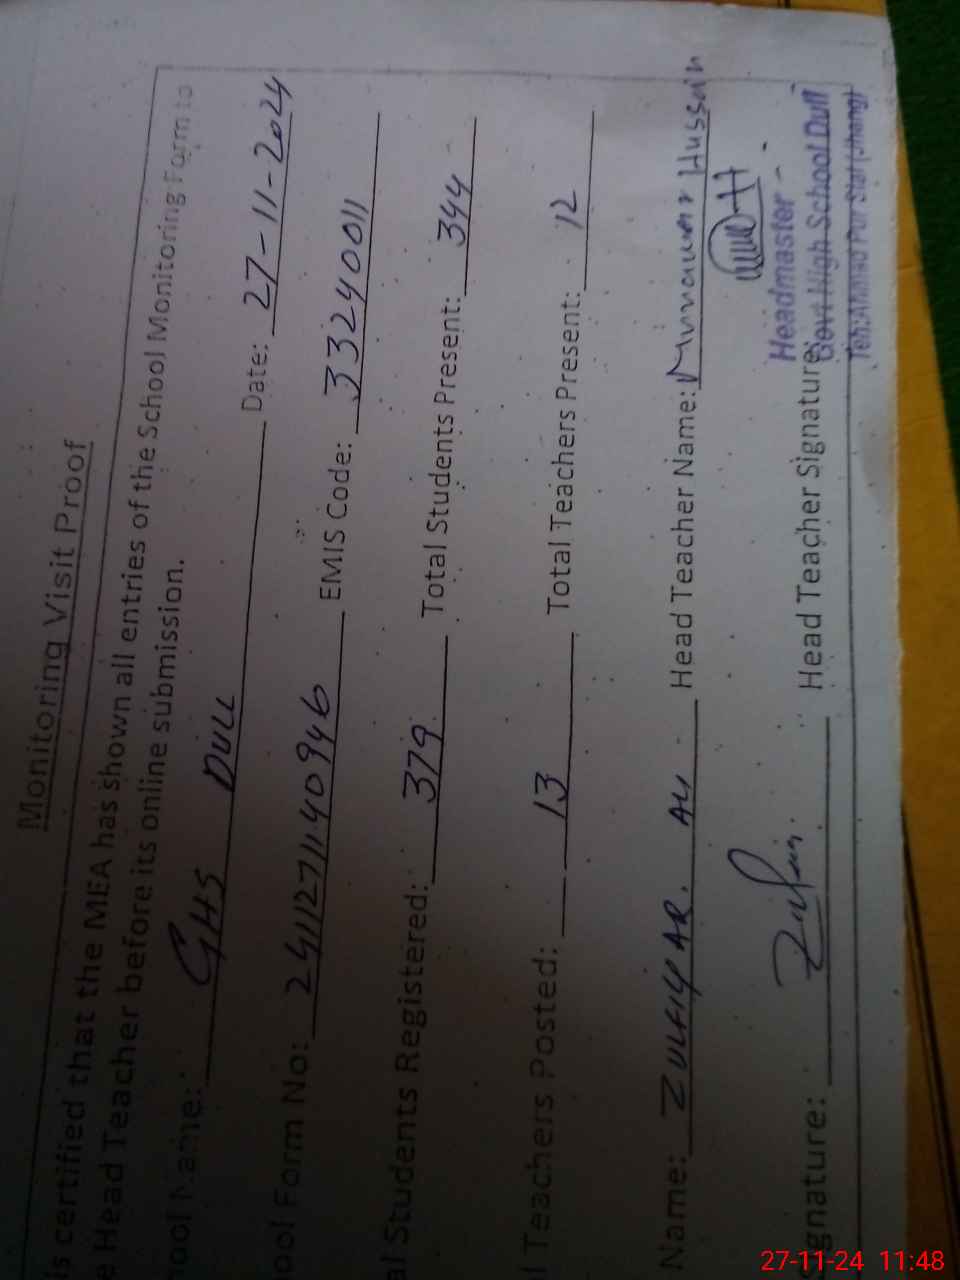 Monitoring Visit Proof
is certified that the MEA has shown all entries of the School Monitoring Form to
e Head Teacher before its online submission.
hool Name: GHS DULL Date: 27-11-2024
ool Form No: 2411271140946 EMIS Code: 33240011
al Students Registered: 379 Total Students Present: 344
l Teachers Posted: 13 Total Teachers Present: 12
Name: ZULFIQAR. ALI Head Teacher Name: Munawar Hussain
ignature: Head Teacher Signature:
Headmaster
Govt High School Dull
Teh: Ahmad Pur Sial (Jhang)
27-11-24 11:48